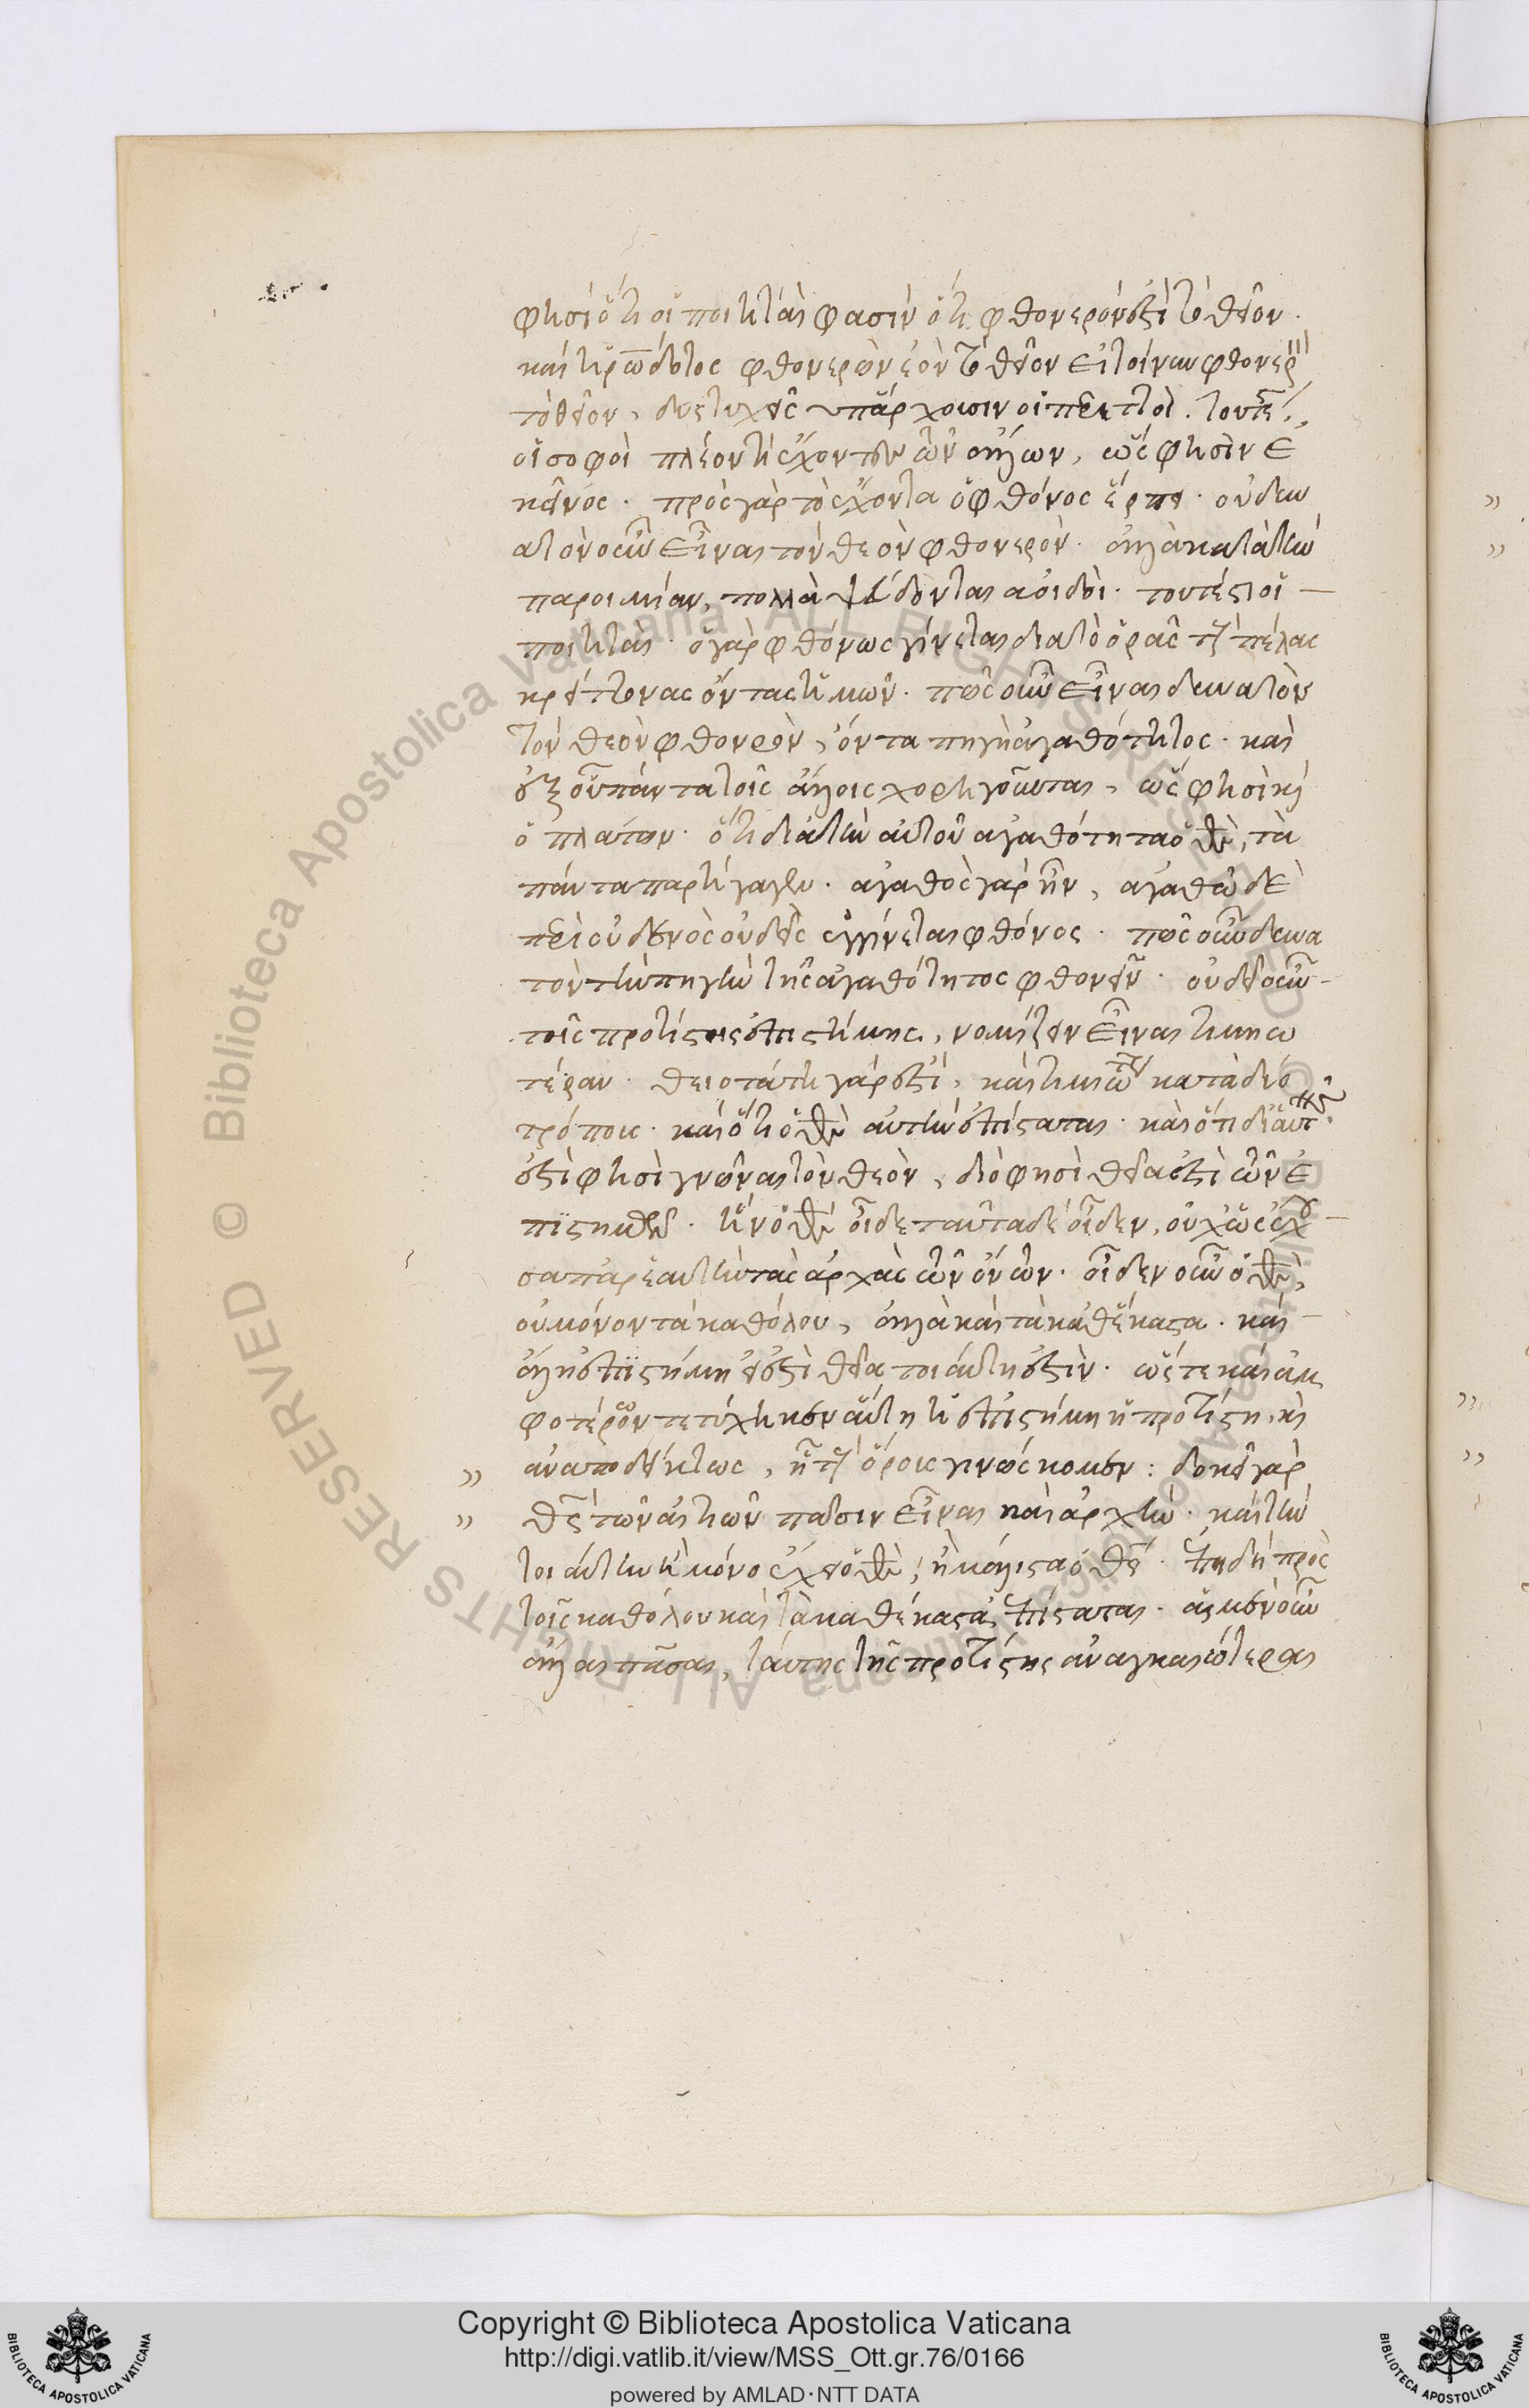 φησὶ ὅτι οἱ ποιηταὶ φασὶν ὅτι φθονερόν ἐστὶ τὸ θεῖον.
καὶ ἡρόδοτος φθονερὸν ἐὸν τὸ θεῖον εἰ τοίνυν φθονερὸν
τὸ θεῖον, δυστυχεῖς ὑπάρχουσιν οἱ περιττοὶ. τουτέστιν
οἱ σοφοὶ πλέον τι ἔχοντες τῶν ἄλλων, ὥς φησὶν ἐ
κεῖνος. πρὸς γὰρ τὸν ἔχοντα ὁ φθόνος ἕρπει. οὐ δυν
ατὸν οὖν εἶναι τὸν θεὸν φθονερὸν. ἀλλὰ κατὰ τὴν
παροιμίαν, πολλὰ ψεύδονται ἀοιδοὶ. τουτέστι οἱ
ποιηταὶ. ὁ γὰρ φθόνος γίνεται διὰ τὸ ὁρᾶν τοὺς πέλας
κρείττονας ὄντας ἡμῶν. πῶς οὖν εἶναι δυνατὸν
τὸν θεὸν φθονερὸν, ὄντα πηγὴ ἀγαθότητος. καὶ
ἐξ οὗ πάντα τοῖς ἄλλοις χορηγοῦνται, ὥς φησὶ καὶ
ὁ πλάτων. ὅτι διὰ τὴν αὐτοῦ ἀγαθότητα ὁ θεὸς, τὰ
πάντα παρήγαγεν. ἀγαθὸς γὰρ ἦν, ἀγαθῷ δὲ
περὶ οὐδενὸς οὐδεὶς ἐγγίνεται φθόνος. πῶς οὖν δυνα
τὸν τὴν πηγὴν τῆς ἀγαθότητος φθονεῖν. οὐ δεῖ οὖν
τῆς προτίστης ἐπιστήμης, νομίζειν εἶναι τιμιω
τέραν. θειοτάτη γάρ ἐστί, καὶ τιμιωτάτη κατὰ δύο
τρόπους. καὶ ὅτι ὁ θεὸς αὐτὴν ἐπίσταται. καὶ ὅτι δι' αὐτῆς
ἐστὶ φησὶ γνῶναι τὸν θεὸν, διὸ φησὶ θεία ἐστὶ τῶν ἐ
πιστημῶν. ἣν ὁ θεὸς οἶδε ταῦτα δὲ οἶδεν, οὐχ ὡς ἔχου
σα παρ' ἑαυτὴν τὰς ἀρχὰς τῶν ὄντων. οἶδεν οὖν ὁ θεὸς,
οὐ μόνον τὰ καθόλου, ἀλλὰ καὶ τὰ καθ' ἕκαστα. καὶ
ἄλλη ἐπιστήμη εἰ ἐστὶ θεία τοιαύτη ἐστὶν. ὥστε καὶ ἀμ
φοτέρων τετύχηκεν αὕτη ἡ ἐπιστήμη ἡ προτίστη, καὶ
ἀναποδείκτως, ᾗ τοὺς ὅρους γινώσκομεν: δοκεῖ γὰρ
θεὸς τῶν αἰτίων πᾶσιν εἶναι καὶ ἀρχὴν. καὶ τὴν
τοιαύτην ἢ μόνος ἔχει ὁ θεὸς, ἢ μάλιστα ὁ θεός. ἐπειδὴ πρὸς
τοῖς καθόλου καὶ τὰ καθέκαστα ἐπίσταται. αἱ μὲν οὖν
ἄλλαι πᾶσαι, ταύτης τῆς προτίστης ἀναγκαιότεραι
Copyright © Biblioteca Apostolica Vaticana
http://digi.vatlib.it/view/MSS_Ott.gr.76/0166
powered by AMLAD·NTT DATA